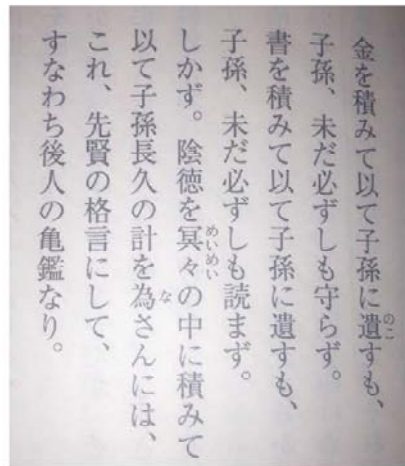 金を積みて以て子孫に遺すも、
子孫、未だ必ずしも守らず。
書を積みて以て子孫に遺すも、
子孫、未だ必ずしも読まず。
しかず。陰徳を冥々の中に積みて
以て子孫長久の計を為さんには、
これ、先賢の格言にして、
すなわち後人の亀鑑なり。